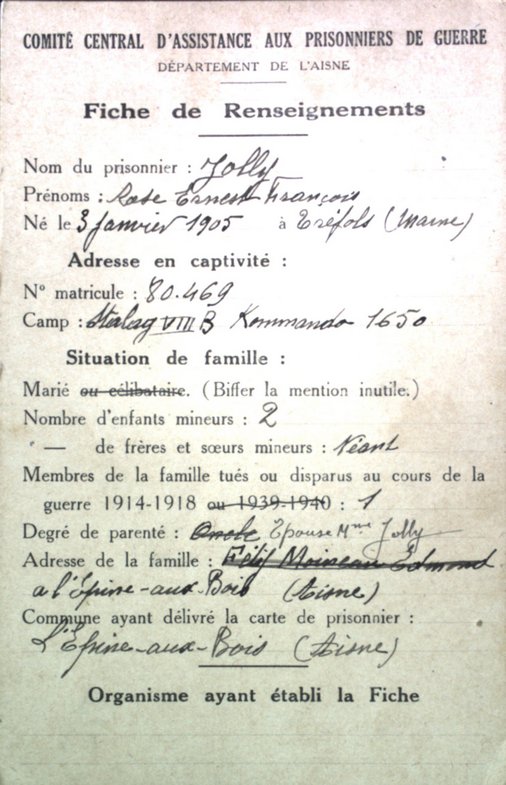 COMITÉ CENTRAL D'ASSISTANCE AUX PRISONNIERS DE GUERRE
DÉPARTEMENT DE L'AISNE
Fiche de Renseignements
Nom du prisonnier : Jolly
Prénoms : Rose Ernest François
Né le 3 janvier 1905 à Tréfols (Marne)
Adresse en captivité :
N° matricule : 80.469
Camp : Stalag VIII B Kommando 1650
Situation de famille :
Marié ou célibataire. (Biffer la mention inutile.)
Nombre d'enfants mineurs : 2
" — de frères et sœurs mineurs : Néant
Membres de la famille tués ou disparus au cours de la
guerre 1914-1918 ou 1939-1940 : 1
Degré de parenté : Oncle Epouse Mme Jolly
Adresse de la famille : Moineau Edmond
a l'Epine-aux-Bois (Aisne)
Commune ayant délivré la carte de prisonnier :
L'Epine-aux-Bois (Aisne)
Organisme ayant établi la Fiche